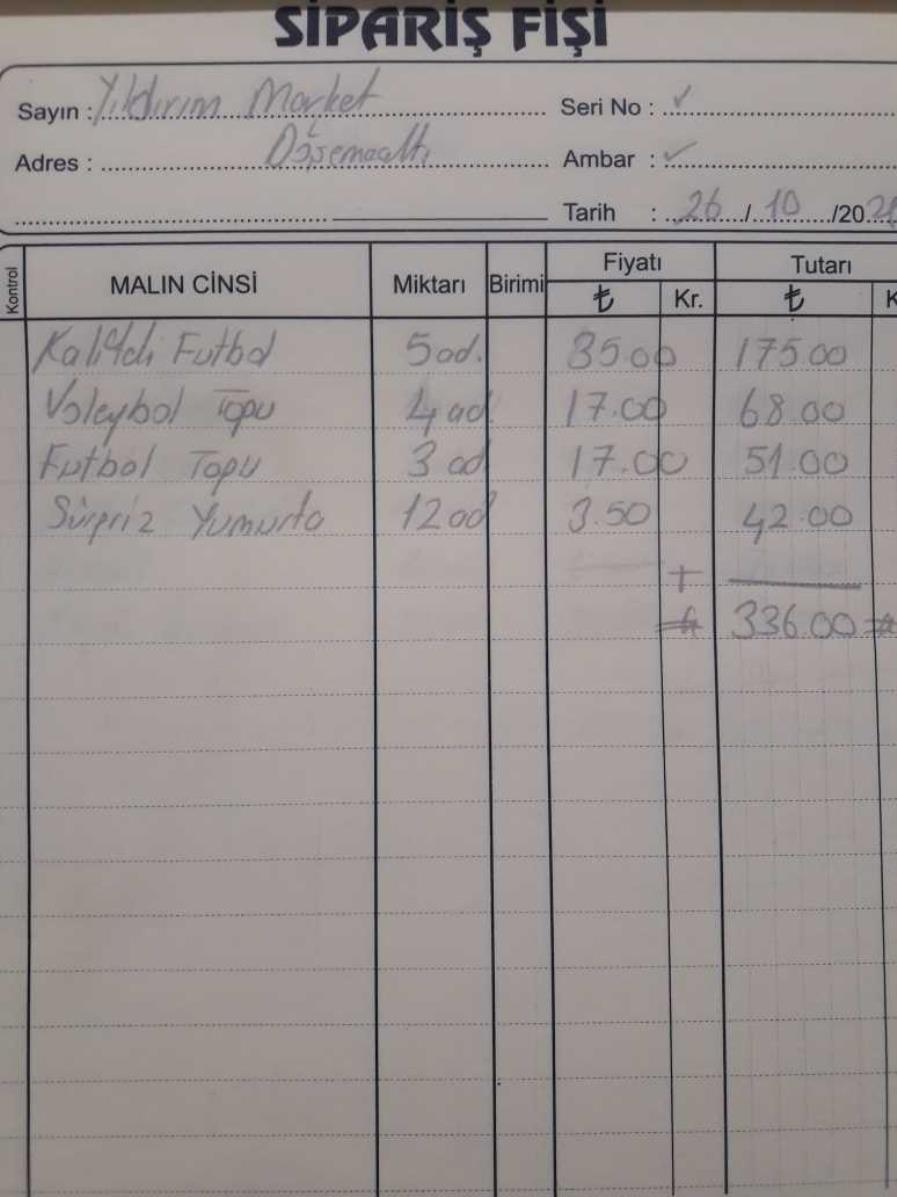 SİPARİŞ FİŞİ
Sayın : Yıldırım Market Seri No : ✓
Adres : Döşemealtı Ambar : ✓
Tarih : 26 / 10 /20
Kontrol MALIN CİNSİ Miktarı Birimi Fiyatı Tutarı
₺ Kr. ₺ K
Futbol 5 ad. 35.00 175.00
Voleybol Topu 4 ad. 17.00 68.00
Futbol Topu 3 ad 17.00 51.00
Sürpriz Yumurta 12 ad 3.50 42.00
+
# 336.00 #